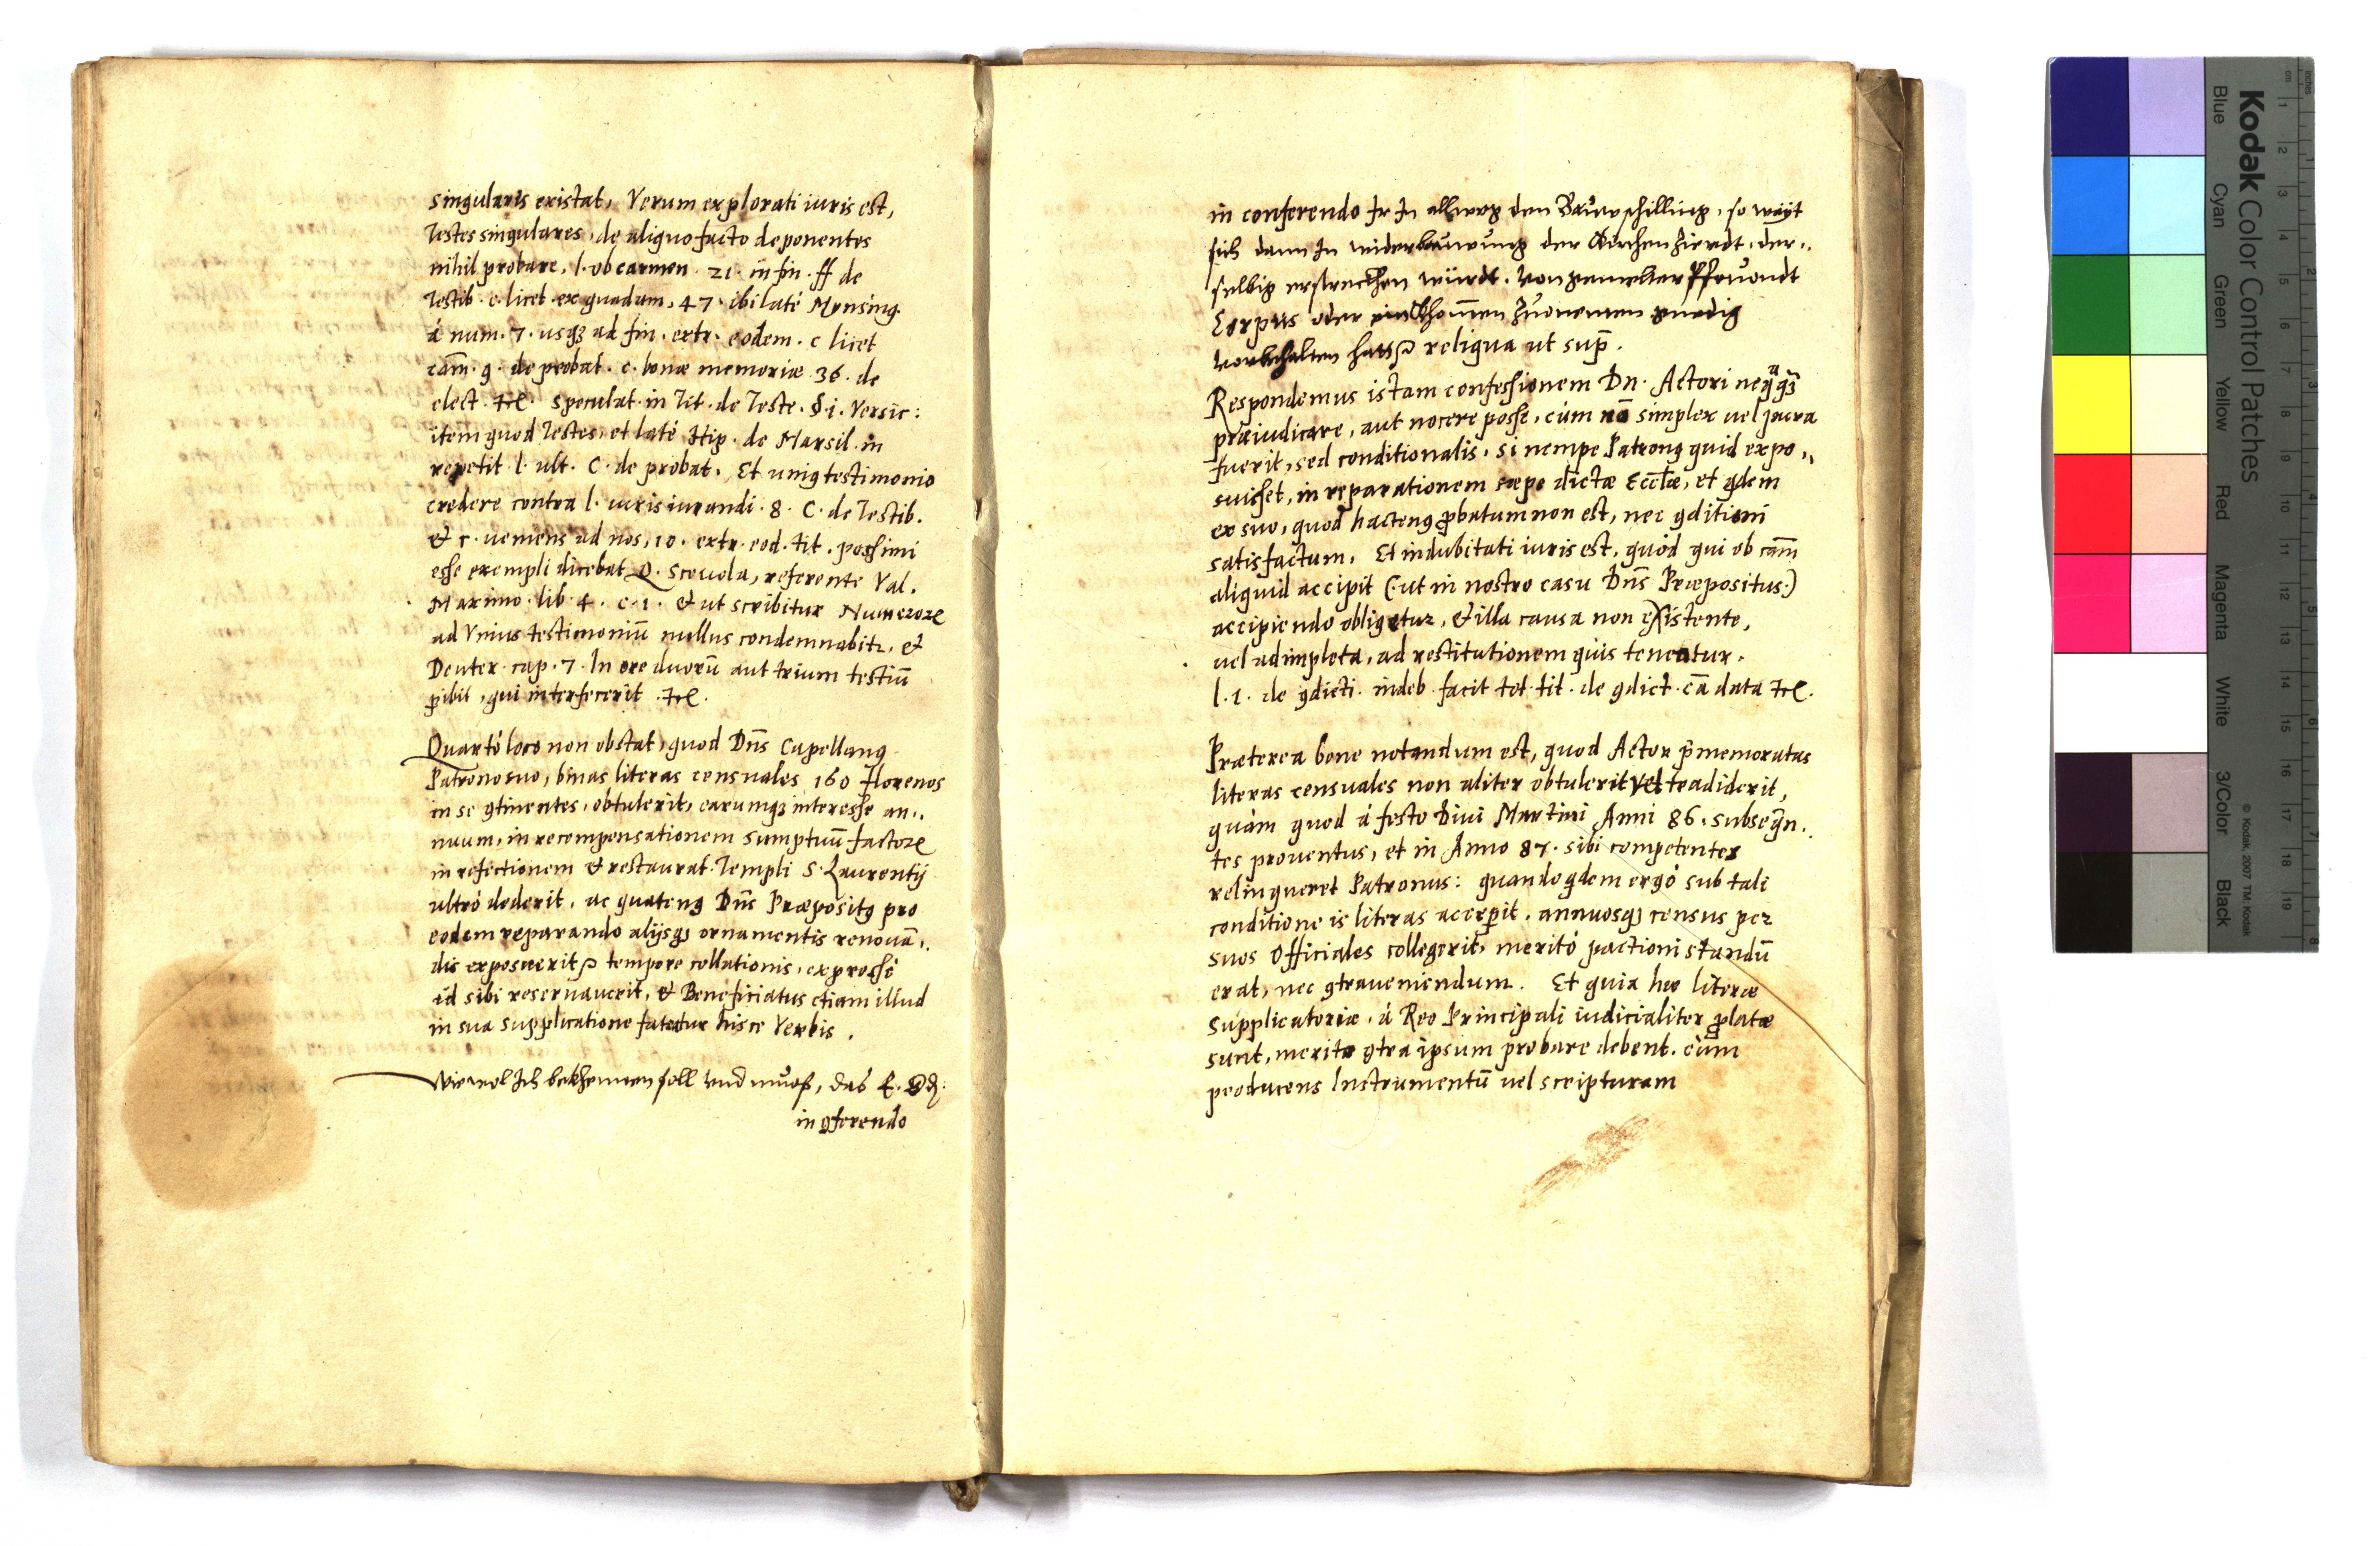 singularis existat, Verum explorati iuris est,
Testes singulares, de aliquo facto deponentes
nihil probare, l. ob carmen. 21. in fin. ff de
Testib. c. licet ex quadam, 47. ibi latè Mynsing.
à num. 7. usq3 ad fin. extr. eodem. c licet
cām. 9. de probat. c. bonæ memoriæ 36. de
elect. etc. Speculat. in Tit. de Teste. §. i. Versic:
item quod Testes, et latè Hip. de Marsil. in
repetit l. ult. C. de probat. Et unius testimonio
credere contra l. iurisiurandi. 8. C. de Testib.
& c. veniens ad nos, 10. extr. eod. tit. pessimi
esse exempli dicebat Q. Scevola, referente Val.
Maximo. lib. 4. c. 1. & ut scribitur Numeror
ad Vnius testimoniū nullus condemnabitr, &
Deuter. cap. 7. In ore duorū aut trium testiū
pibit, qui interfecerit. etc.
Quartò loco non obstat, quod Dn̄s Capellanus
Patrono suo, binas literas censuales 160 florenos
in se 9tinentes, obtulerit, earumq3 interesse an„
nuum, in recompensationem sumptuū factor
in refectionem & restaurat. Templi S. Laurentij
ultrò dederit, ac quatenus Dn̄s Præpositus pro
eodem reparando alijsq3 ornamentis renouā„
dis exposuerit tempore collationis, expressè
id sibi reseruauerit, & Beneficiatus etiam illud
in sua supplicatione fatetur hisce Verbis.
Wiewol Ich bekhennen soll und muoß, das E.
in 9ferendo
in conferendo Ir In allweg den Bauwschilling, so weyt
sich dann In widerbauwung der Kirchen Zierdt, der„
selbig erstreckhen würdt. Von gemelter Pfruondt
Corpus oder einkhom̄en Zuonemen gnedig
vorbehalten hatt reliqua ut sup̄.
Respondemus istam confessionem Dn. Actori neq̃q3
præiudicare, aut nocere posse, cùm nō simplex uel pura
fuerit, sed conditionalis, si nempe Patronus quid expo„
suisset, in reparationem sæpe dictæ Eccl̄æ, et qdem
ex suo, quod hactenus pbatum non est, nec 9ditioni
satisfactum. Et indubitati iuris est, quòd qui ob cām
aliquid accipit (ut in nostro casu Dn̄s Præpositus)
accipiendo obligetur, & illa causa non existente,
uel adimpleta, ad restitutionem quis teneatur.
l. 1. de 9dicti. indeb. facit tot. tit. de 9dict. cā data etc.
Præterea bene notandum est, quod Actor p̄memoratas
literas censuales non aliter obtulerit vel tradiderit,
quàm quod à festo Diui Martini Anni 86. subseqn„
tes prouentus, et in Anno 87. sibi competentes
relinqueret Patronus: quandoqdem ergò sub tali
conditione is literas accepit, annuosq3 census per
suos Officiales collegerit, meritò pactioni standū
erat, nec 9traueniendum. Et quia hæ literæ
supplicatoriæ, à Reo Principali iudicialiter platæ
sunt, meritò 9tra ipsum probare debent. cùm
producens Instrumentū uel scripturam
Kodak Color Control Patches
Blue Cyan Green Yellow Red Magenta White 3/Color Black
© Kodak, 2007 TM: Kodak